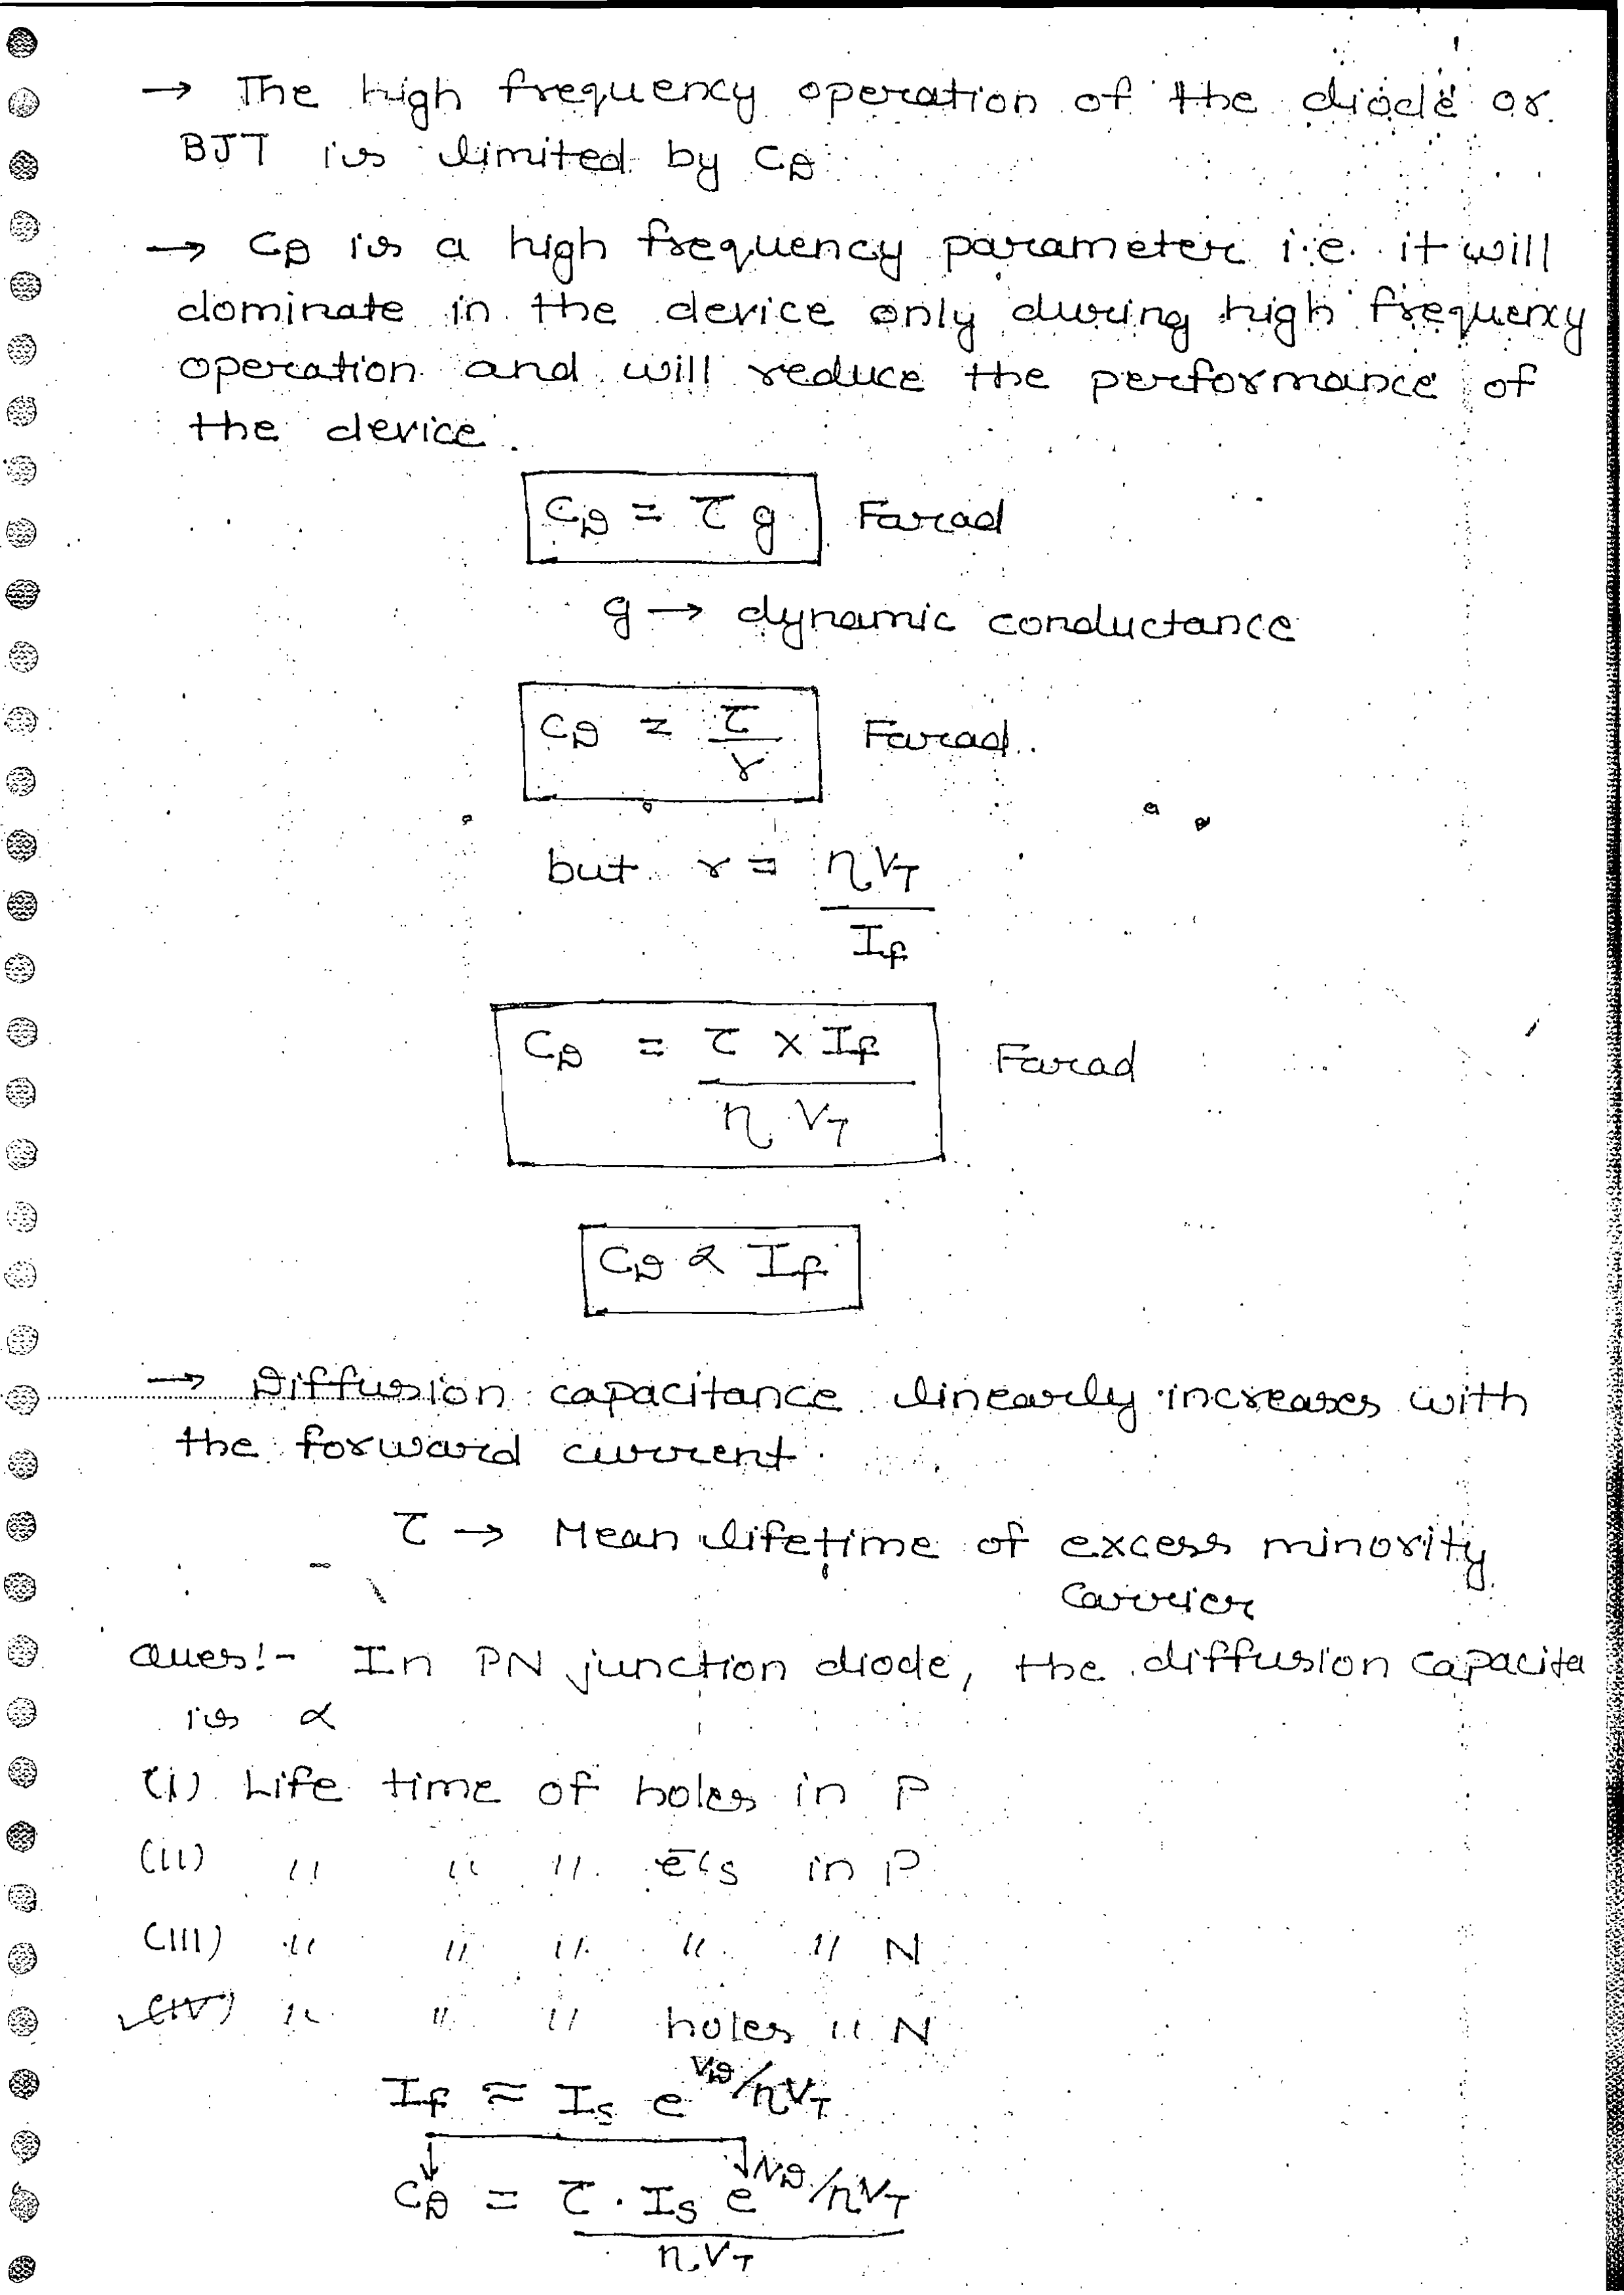 → The high frequency operation of the diode or
BJT is limited by C_D
→ C_D is a high frequency parameter i.e. it will
dominate in the device only during high frequency
operation and will reduce the performance of
the device.
C_D = τ g Farad
g → dynamic conductance
C_D = τ/r Farad.
but r = ηV_T/I_f
C_D = τ × I_f / η V_T Farad
C_D ∝ I_f
→ Diffusion capacitance linearly increases with
the forward current.
τ → Mean lifetime of excess minority
carrier
Ques:- In PN junction diode, the diffusion capacita
is ∝
(i) Life time of holes in P
(ii) " " " e̅'s in P
(iii) " " " " " N
✓(iv) " " " holes " N
I_f ≈ I_s e^{V_D/ηV_T}
C_D = τ · I_s e^{V_D/ηV_T} / η V_T